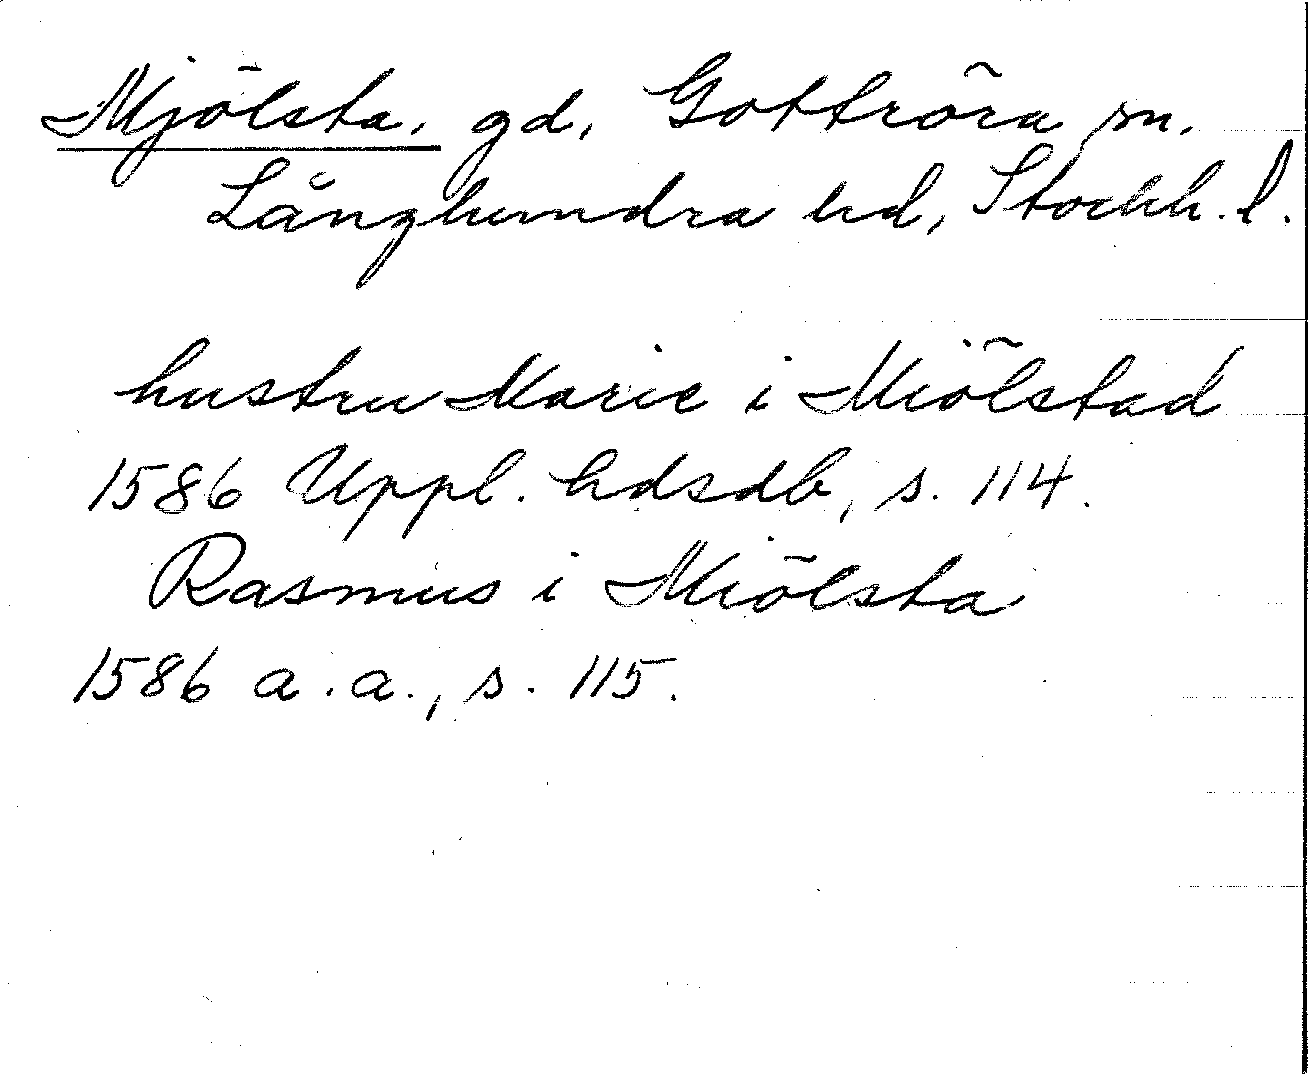 Mjölsta, gd, Gottröra sn.
Långhundra hd, Stockh. l.
hustru Marie i Miölstad
1586 Uppl. hdsdb, s. 114.
Rasmus i Miölsta
1586 a.a., s. 115.